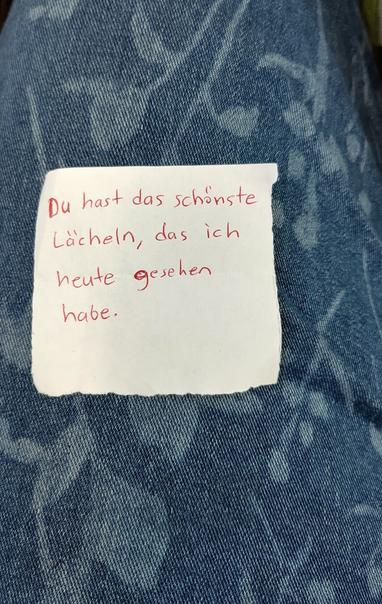 Du hast das schönste
Lächeln, das ich
heute gesehen
habe.